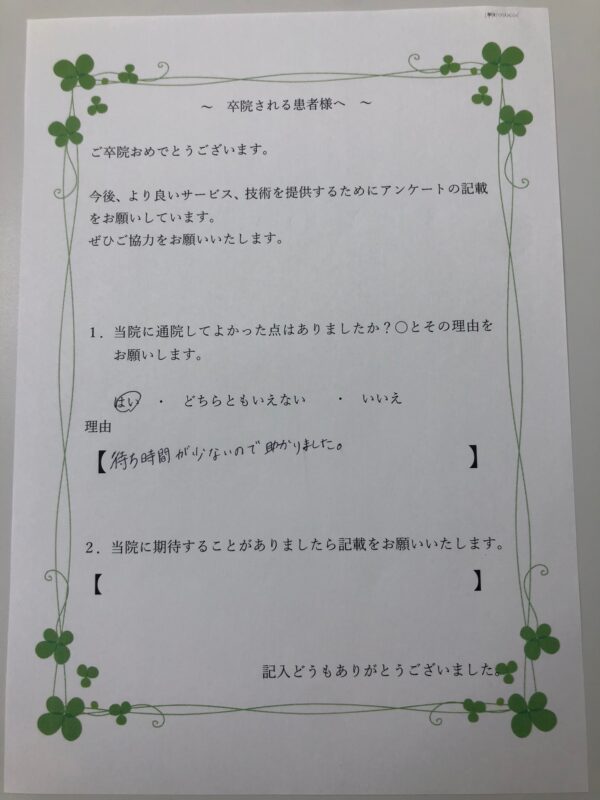 ～　卒院される患者様へ　～
ご卒院おめでとうございます。
今後、より良いサービス、技術を提供するためにアンケートの記載
をお願いしています。
ぜひご協力をお願いいたします。
１．当院に通院してよかった点はありましたか？〇とその理由を
お願いします。
はい　・　どちらともいえない　　・　いいえ
理由
【待ち時間が少ないので助かりました。】
２．当院に期待することがありましたら記載をお願いいたします。
【　】
記入どうもありがとうございました。